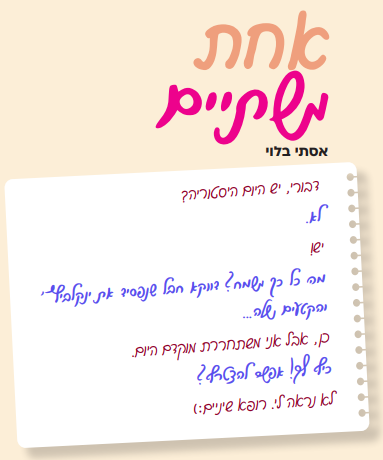 אחת
משתיים
אסתי בלוי
דבורי, יש היום היסטוריה?
לא.
יש!
מה כל כך משמח? דווקא חבל שנפסיד את ינקלביץ',
והקטעים שלה...
כן, אבל אני משתחררת מוקדם היום.
כיף לך! אפשר להצטרף?
לא נראה לי. רופא שיניים:)